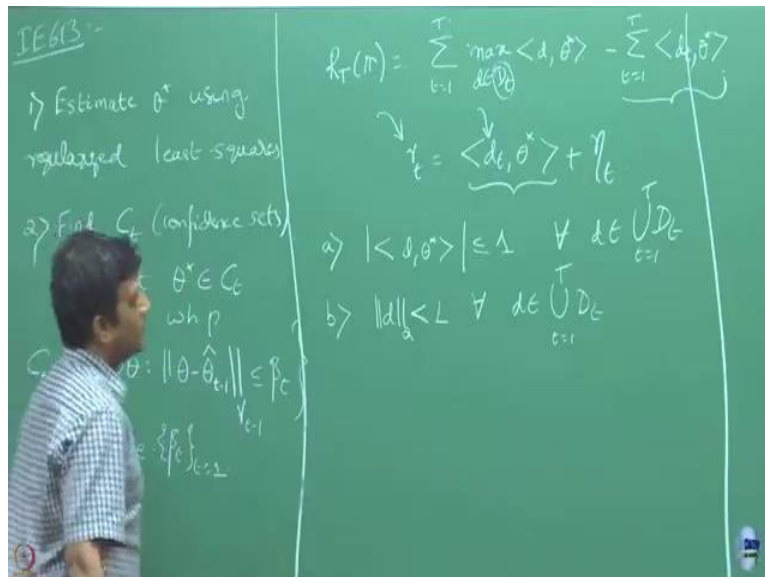 IE613:-
1) Estimate θ* using
regularized least-squares
2) Find C_t (confidence sets)
t θ* ∈ C_t
whp
C θ: ||θ-θ̂_{t-1}||_{V_{t-1}} ≤ β_t }
{β_t}_{t=1}
R_T(π) = Σ_{t=1}^{T} max_{d∈D_t} <d, θ*> - Σ_{t=1}^{T} <d_t, θ*>
r_t = <d_t, θ*> + η_t
a) |<d, θ*>| ≤ 1 ∀ d∈ ⋃_{t=1}^{T} D_t
b) ||d||_2 < L ∀ d∈ ⋃_{t=1}^{T} D_t